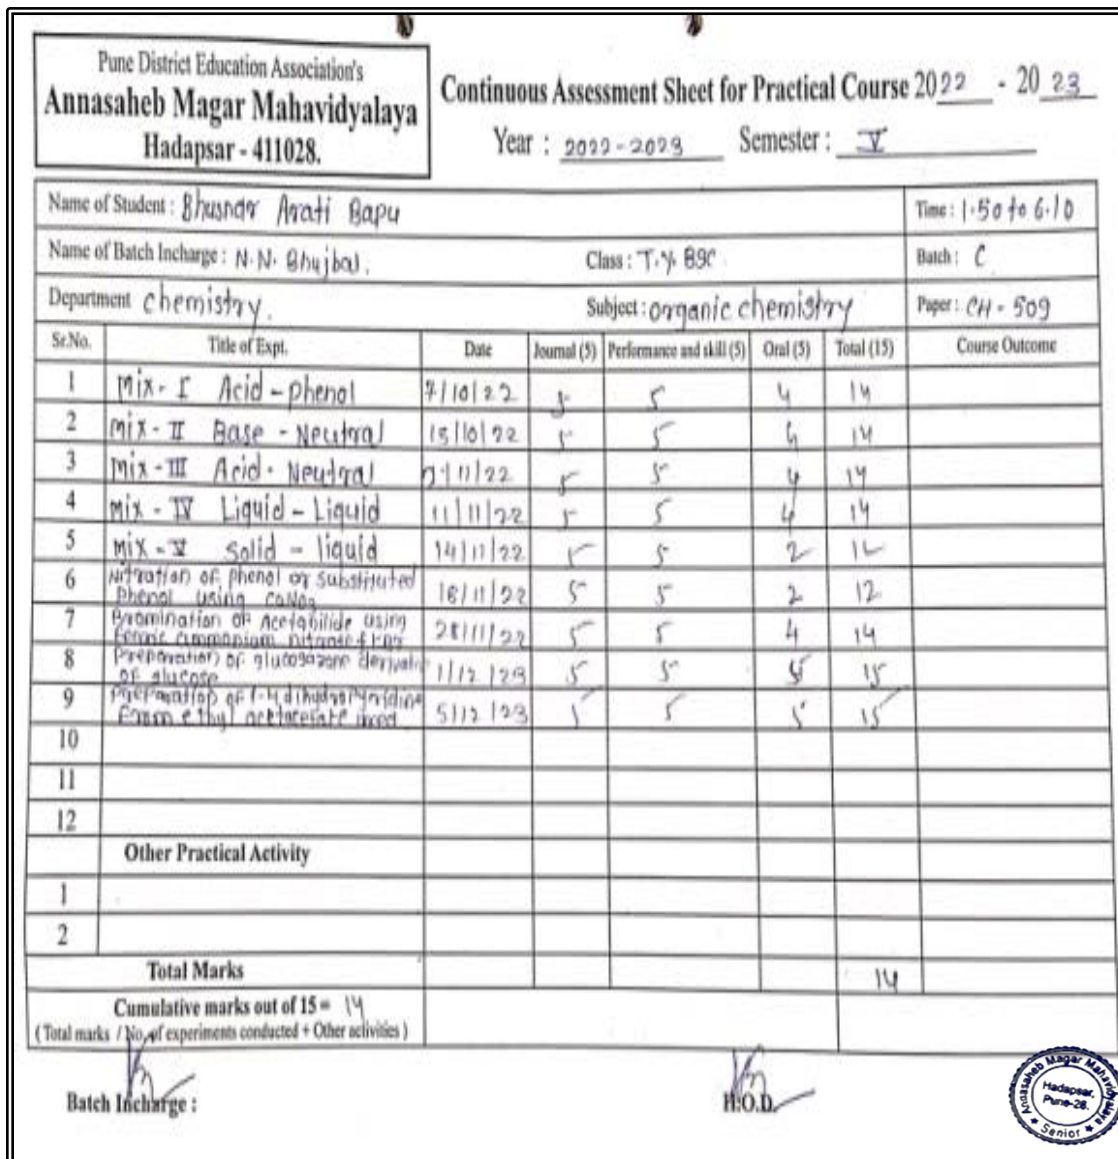 Pune District Education Association's
Annasaheb Magar Mahavidyalaya
Hadapsar - 411028.
Continuous Assessment Sheet for Practical Course 2022 - 20 23
Year : 2022-2023 Semester : V
Name of Student : Bhusnar Arati Bapu Time : 1.50 to 6.10
Name of Batch Incharge : N.N. Bhujbal. Class : T.Y. BSC Batch : C
Department chemistry. Subject : organic chemistry Paper : CH - 509
Sr.No. Title of Expt. Date Journal (5) Performance and skill (5) Oral (5) Total (15) Course Outcome
1 Mix - I Acid - phenol 7/10/22 5 5 4 14
2 Mix - II Base - Neutral 15/10/22 5 5 4 14
3 Mix - III Acid - Neutral /11/22 5 5 4 14
4 Mix - IV Liquid - Liquid 11/11/22 5 5 4 14
5 Mix - V Solid - liquid 14/11/22 5 5 2 12
6 Nitration of phenol or substituted
Phenol using 18/11/22 5 5 2 12
7 Bromination of using
nitrate 28/11/22 5 5 4 14
8 Preparation of glucosazone
of glucose 1/12/23 5 5 5 15
9 Preparation of
from ethyl 5/12/23 5 5 5 15
10
11
12
Other Practical Activity
1
2
Total Marks 14
Cumulative marks out of 15 = 14
( Total marks / No. of experiments conducted + Other activities )
Batch Incharge : H.O.D.
Annasaheb Magar Mahavidyalaya
Hadapsar,
Pune-28.
★ Senior ★